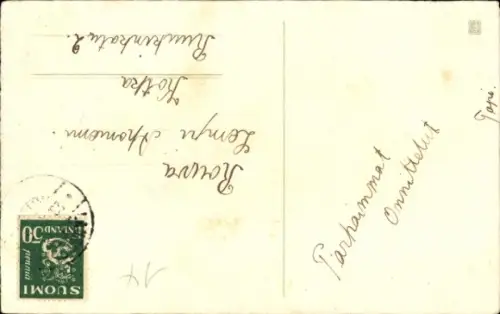 Rouva
Lempi Ahoniemi.
Kotka
Ruukinkatu 2.
Parhaimmat
Onnittelut
SUOMI
FINLAND
50
penniä
14